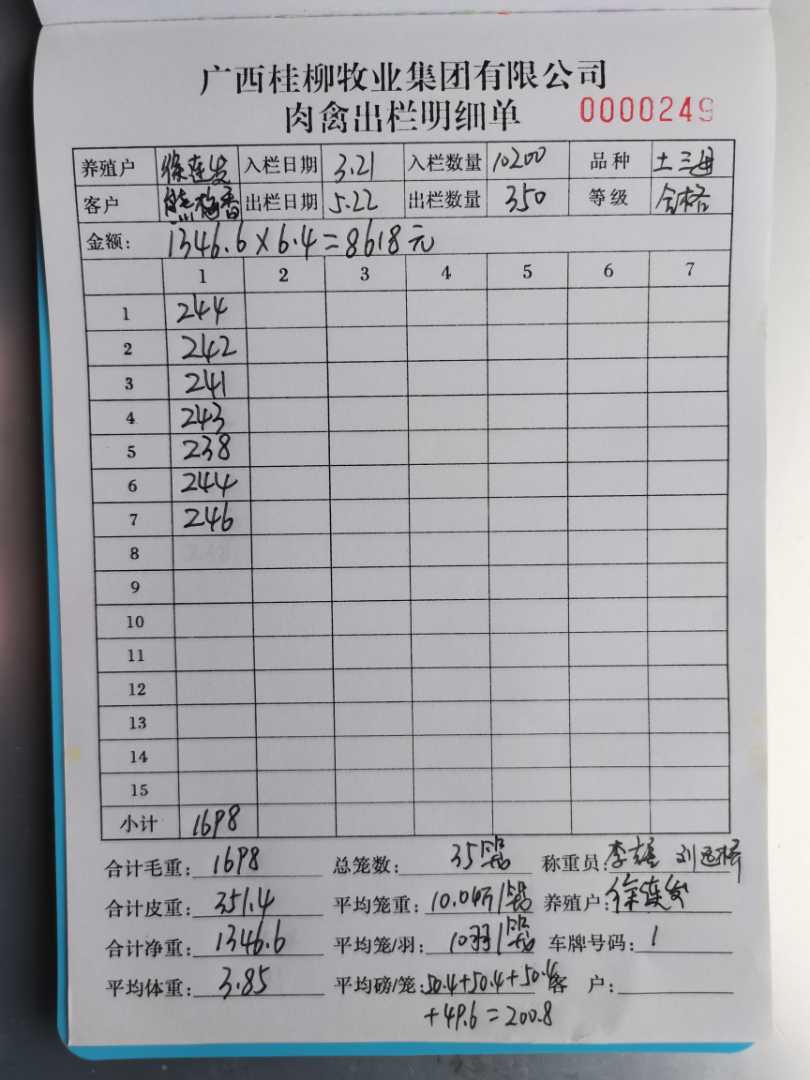 广西桂柳牧业集团有限公司
肉禽出栏明细单 0000249
养殖户 徐连发 入栏日期 3.21 入栏数量 10200 品种 土三母
客户 熊梅香 出栏日期 5.22 出栏数量 350 等级 合格
金额: 1346.6×6.4=8618元
1 2 3 4 5 6 7
1 244
2 242
3 241
4 243
5 238
6 244
7 246
8
9
10
11
12
13
14
15
小计 1698
合计毛重: 1698 总笼数: 35 称重员: 李雄 刘
合计皮重: 351.4 平均笼重: 10.04斤/ 养殖户: 徐连发
合计净重: 1346.6 平均笼/羽: 10羽/ 车牌号码: 1
平均体重: 3.85 平均磅/笼: 50.4+50.4+50.4 客 户:
+49.6=200.8